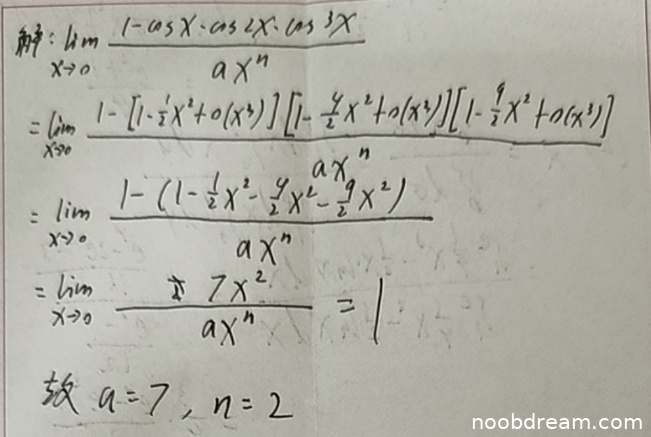 解: lim x→0 (1-cosx·cos2x·cos3x)/(ax^n)
= lim x→0 (1-[1-1/2x²+o(x³)][1-4/2x²+o(x³)][1-9/2x²+o(x³)])/(ax^n)
= lim x→0 (1-(1-1/2x²-4/2x²-9/2x²))/(ax^n)
= lim x→0 (7x²)/(ax^n) = 1
故 a=7, n=2
noobdream.com